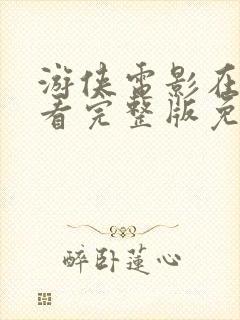 游侠电影在
看完整版免
醉卧莲心